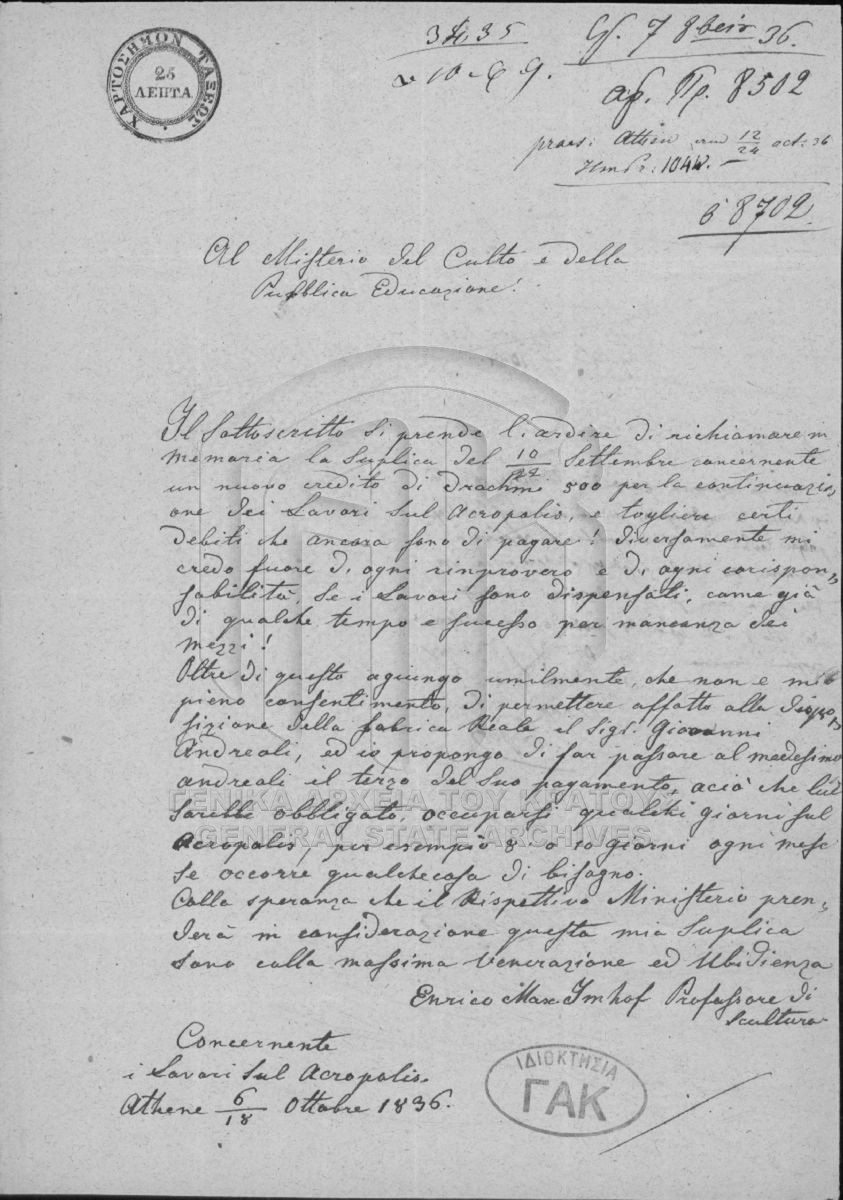 ΧΑΡΤΟΣΗΜΟΝ ΤΑΞΕΩΣ
25
ΛΕΠΤΑ
7 8beir 36.
αρ. Πρ. 8502
praes: Athen 12/24 oct: 36
8702
Al Misterio del Culto e della
Pubblica Educazione!
Il Sottoscritto si prende l'ardire di richiamare in
memoria la Suplica del 10/22 Settembre concernente
un nuovo credito di Drachmi 500 per la continuazi„
one dei Lavori sul Acropolis, e togliere certi
debiti che ancora sono di pagare! diversamente mi
credo fuore di ogni rinprovero e di ogni corispon„
sabilità, se i Lavori sono dispensati, come già
di qualche tempo e sucesso per mancanza dei
mezzi!
Oltre di questo agiungo umilmente, che non e mio
pieno consentimento, di permettere affatto alla dispo„
sizione della fabrica Reale il Sigl. Giovanni
Andreali, ed io propongo di far passare al medesimo
andreali il terzo del suo pagamento, aciò che lui
sarebbe obbligato, occuparsi qualchi giorni sul
Acropolis, per esempio 8 o 10 giorni ogni mese
se occorre qualchecosa di bisogno.
Colla speranza che il Rispettivo Ministerio pren„
derà in considerazione questa mia Suplica
sono colla massima Venerazione ed Ubidienza
Enrico Max Imhof Professore di
Scultura
Concernente
i Lavori sul Acropolis.
Athene 6/18 Ottobre 1836.
ΓΕΝΙΚΑ ΑΡΧΕΙΑ ΤΟΥ ΚΡΑΤΟΥΣ
GENERAL STATE ARCHIVES
ΙΔΙΟΚΤΗΣΙΑ
ΓΑΚ